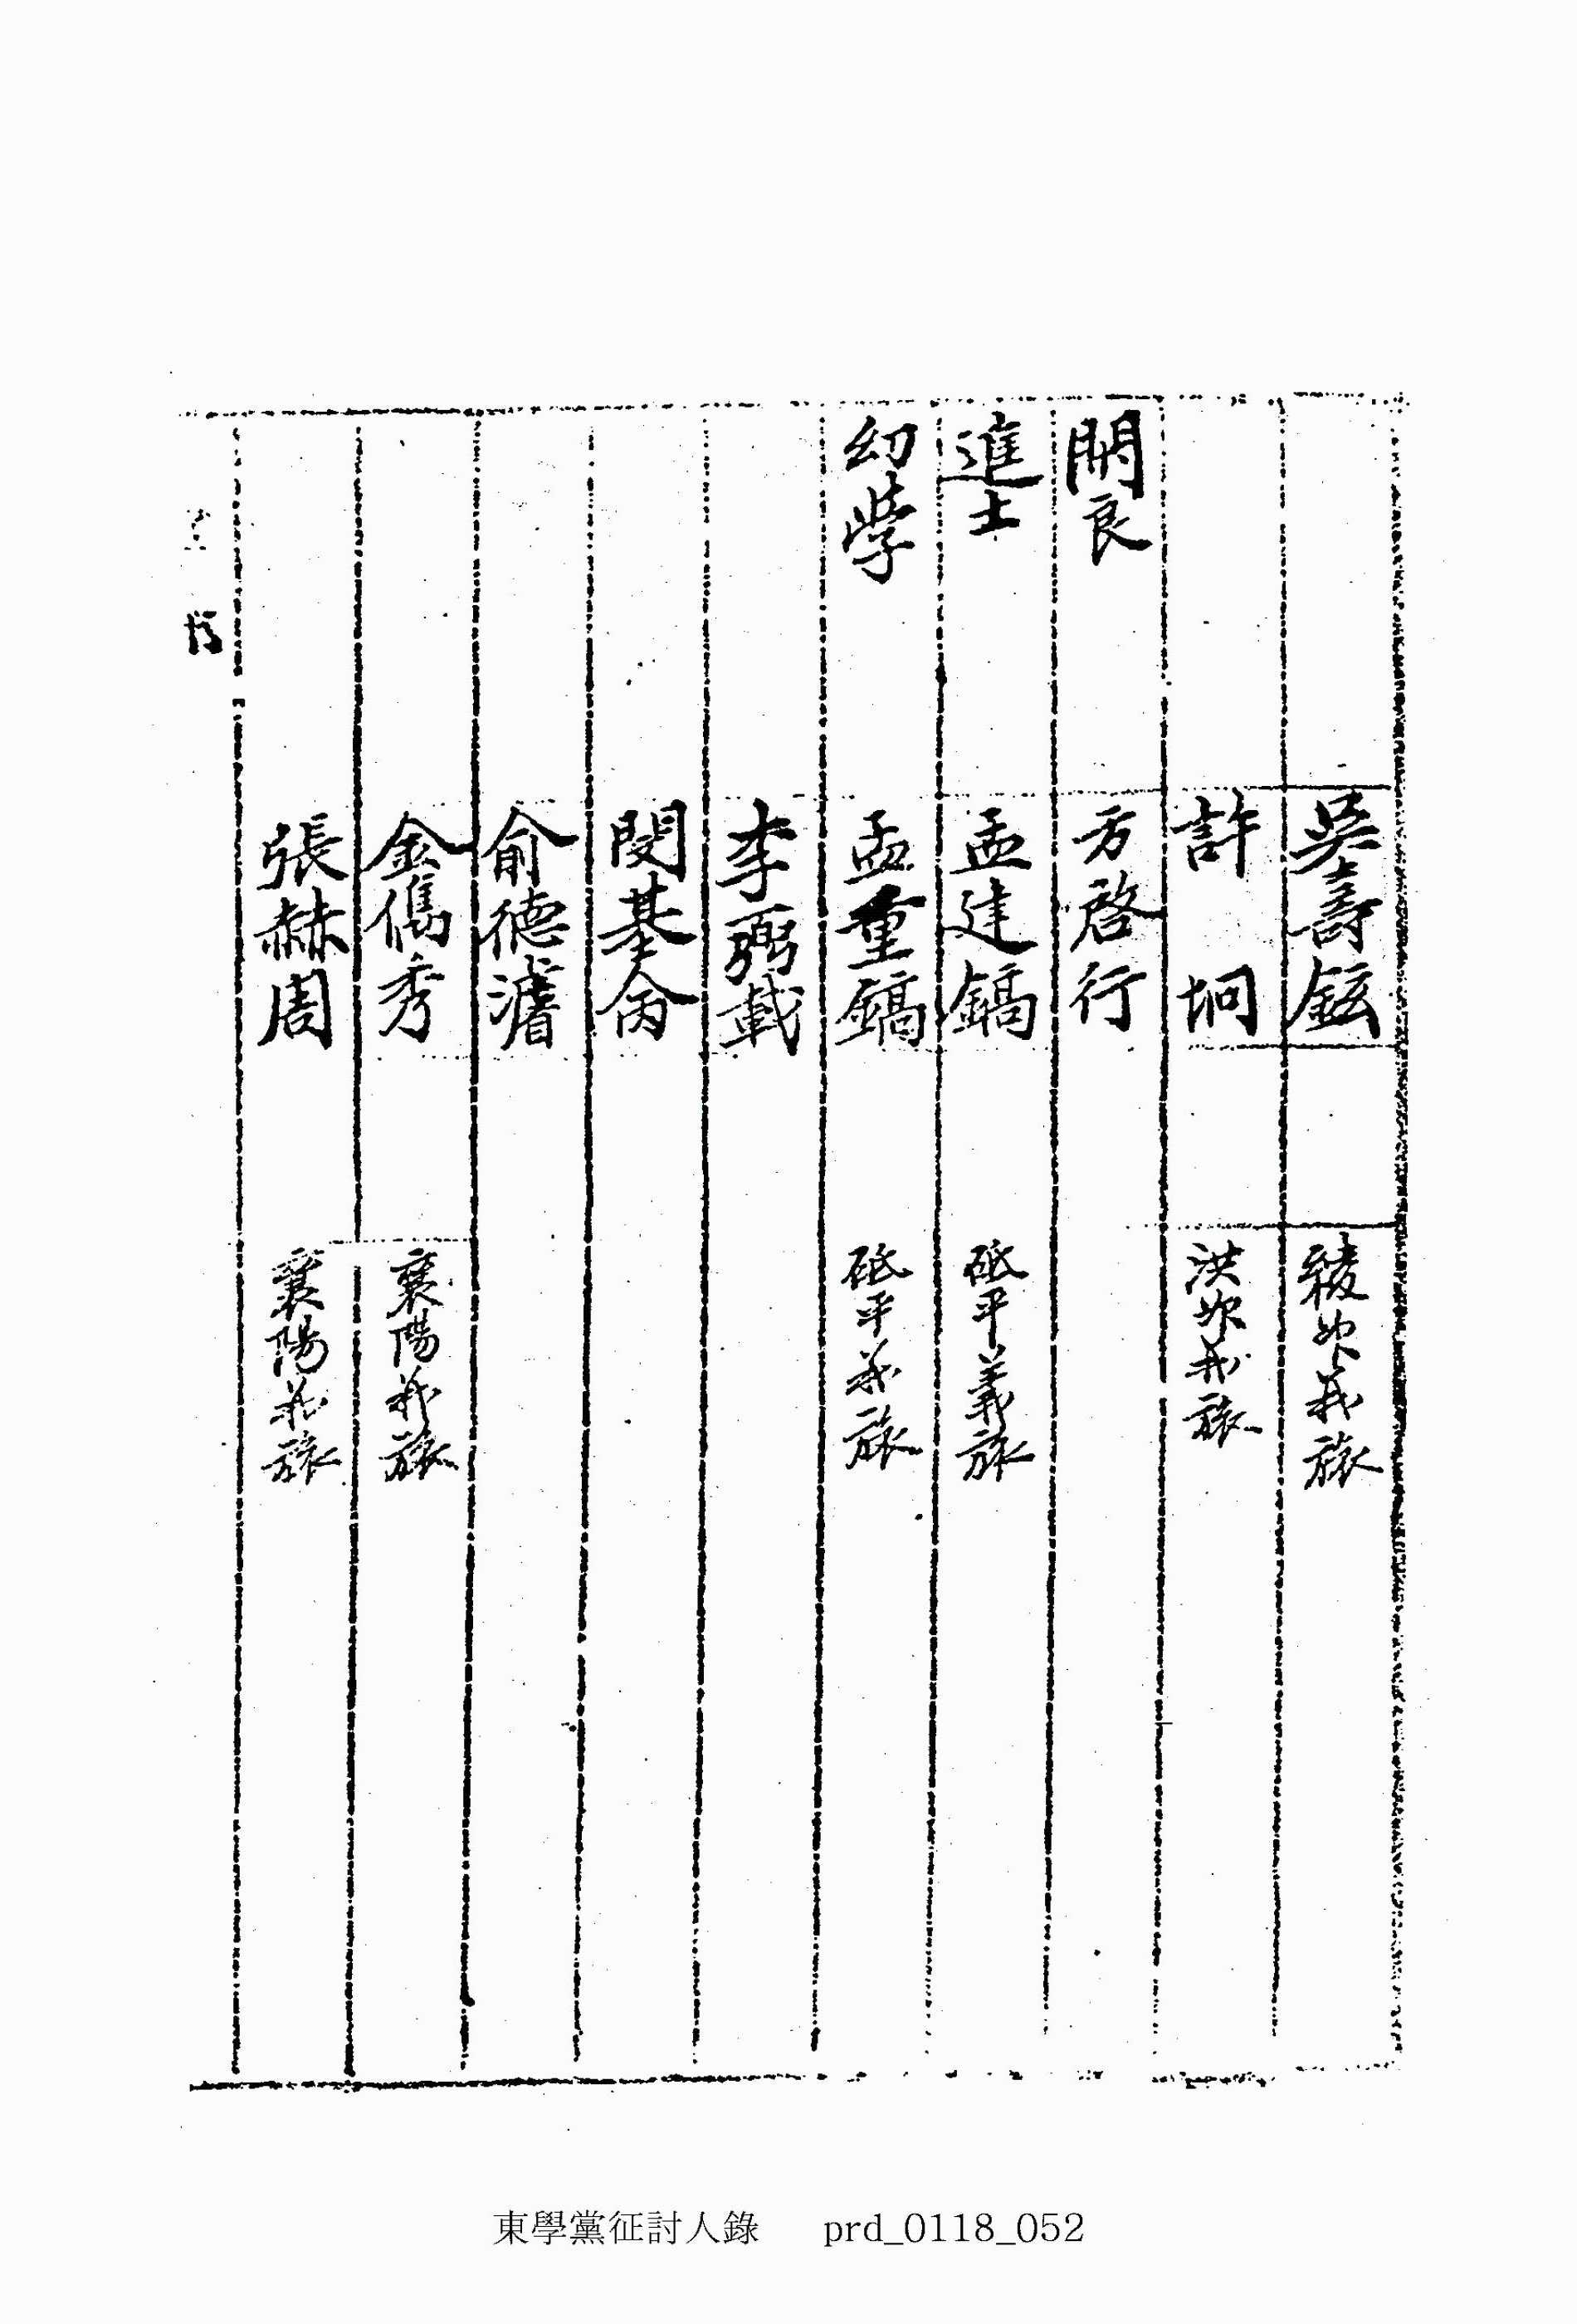 吳壽鉉 綾州義旅
許坰 洪州義旅
閑良 方啓行
進士 孟建鎬 砥平義旅
幼學 孟重鎬 砥平義旅
李弼載
閔基命
俞德濬
金儁秀 襄陽義旅
張赫周 襄陽義旅
東學黨征討人錄 prd_0118_052